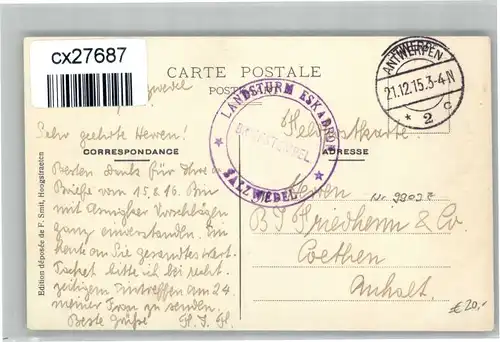 cx27687
ANTWERPEN
21.12.15.3-4N
* 2 c
CARTE POSTALE
POSTKAART
LANDSTURM ESKADRON
BRIEFSTEMPEL
SALZWEDEL
Sehr geehrte Herren!
Feldpostkarte
CORRESPONDANCE
ADRESSE
Besten Dank für Ihre
Briefe vom 15 & 16. Bin
mit Vorschlägen
ganz einverstanden.
heute an Sie gesandtes
bitte ich bei recht-
zeitigem Eintreffen am 24
meiner Frau zu senden.
Beste Grüße
Herren
Friedheim & Co.
Coethen
Anhalt.
€20,-
Edition déposée de F. Smit, Hoogstraeten